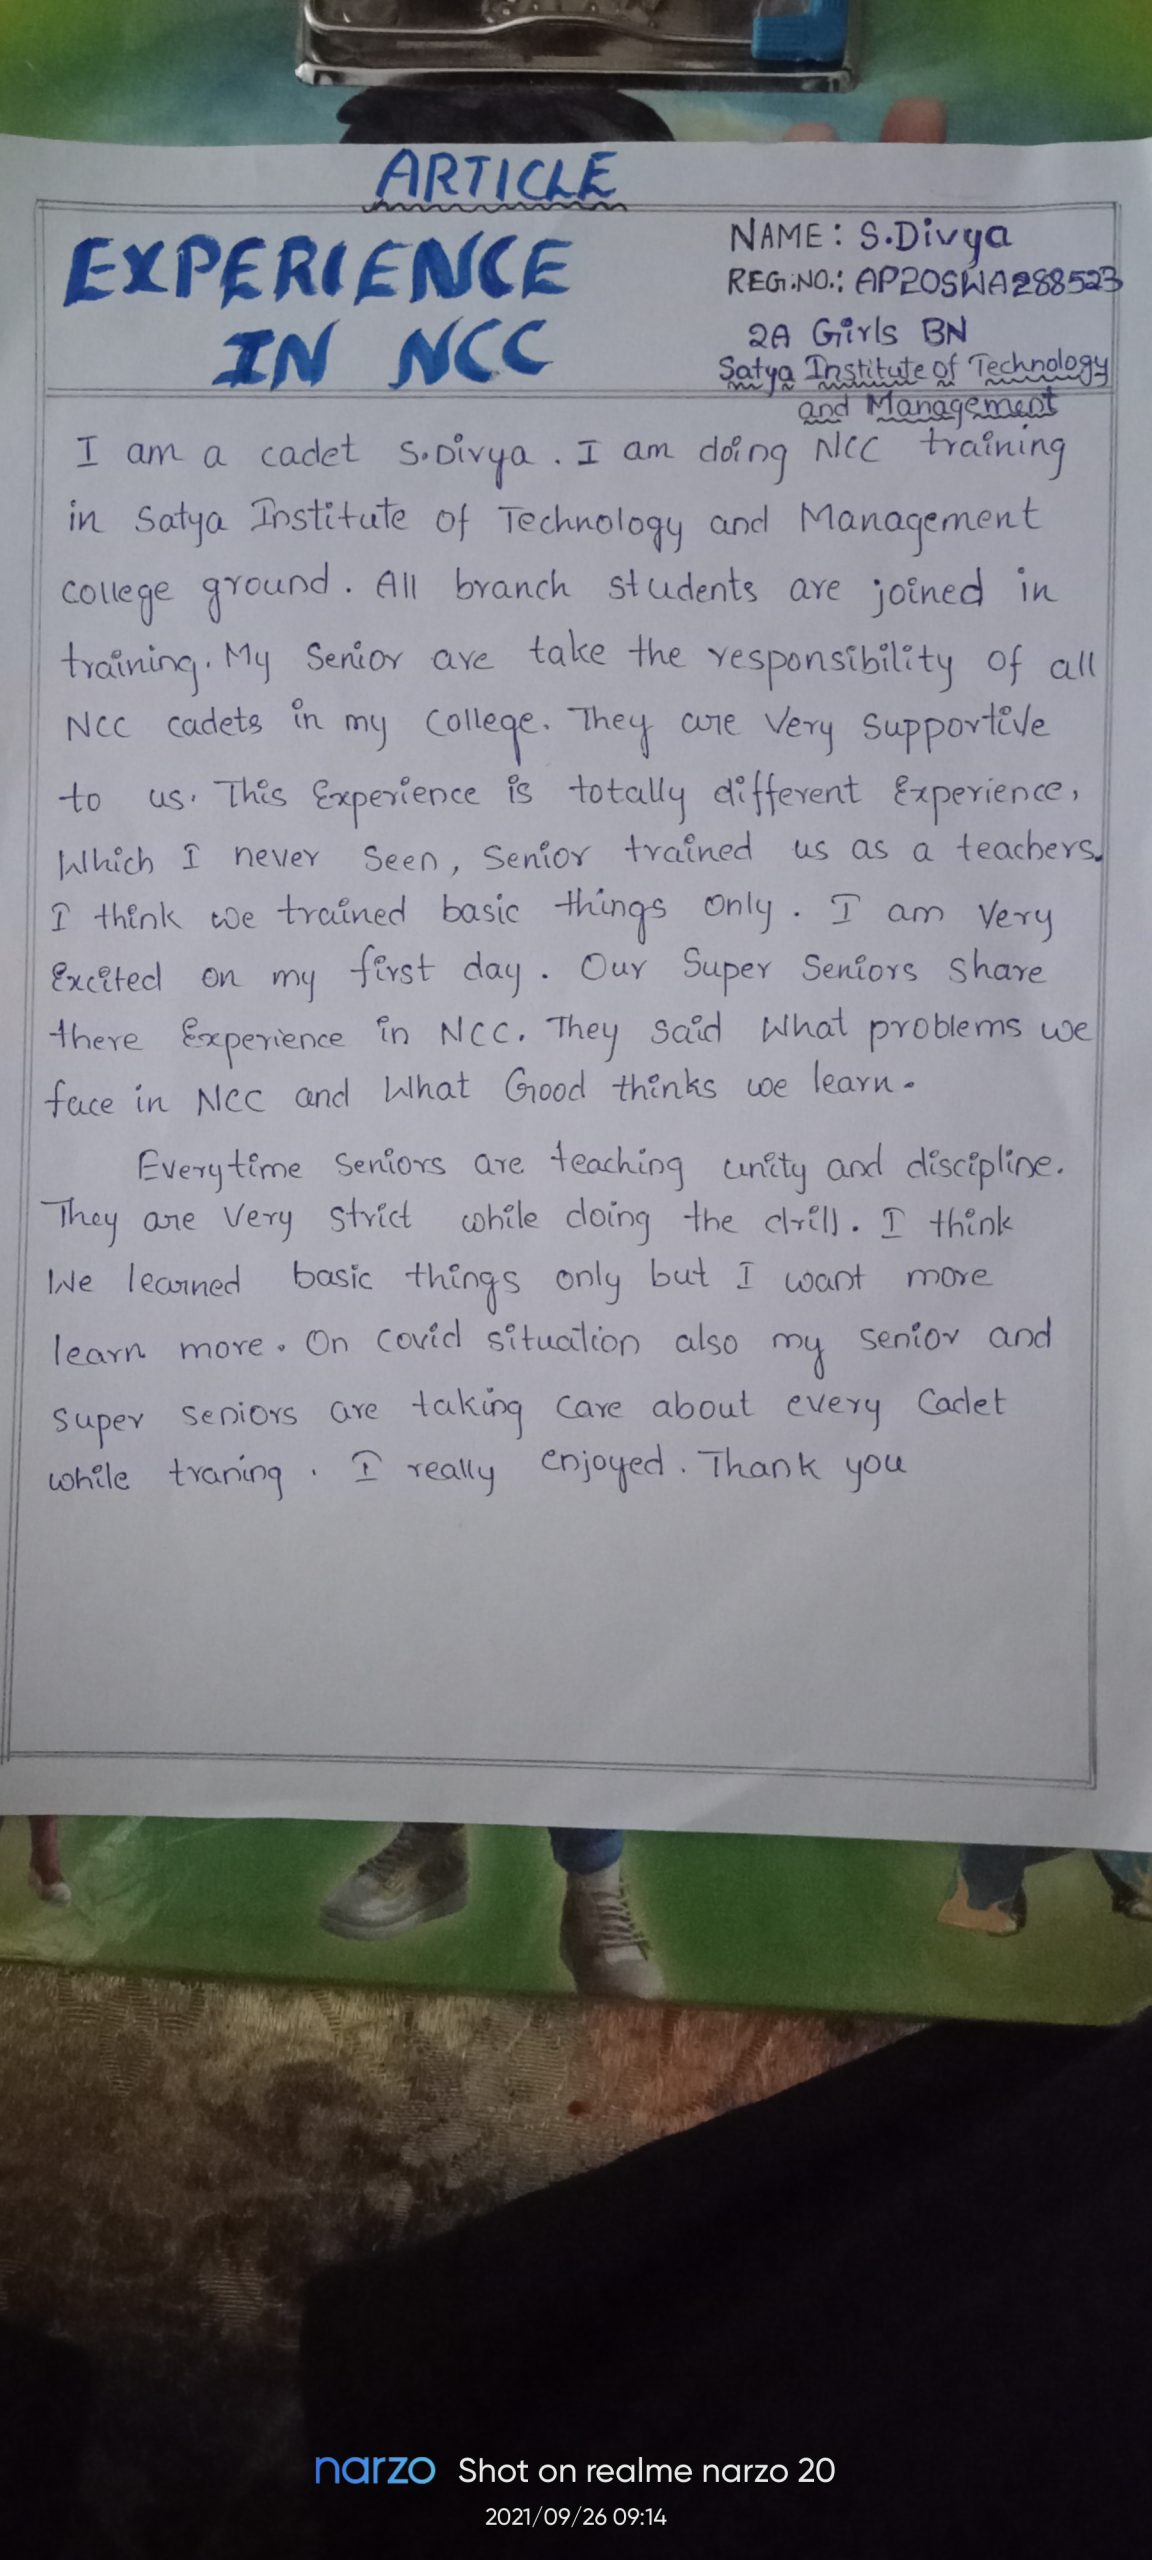 ARTICLE
EXPERIENCE
IN NCC
NAME: S.Divya
REG.NO.: AP20SWA288523
2A Girls BN
Satya Institute of Technology
and Management
I am a cadet S.Divya. I am doing NCC training
in Satya Institute of Technology and Management
college ground. All branch students are joined in
training. My Senior are take the responsibility of all
NCC cadets in my college. They are Very Supportive
to us. This Experience is totally different Experience,
Which I never Seen, Senior trained us as a teachers.
I think we trained basic things only. I am Very
Excited on my first day. Our Super Seniors Share
there Experience in NCC. They Said What problems we
face in NCC and What Good thinks we learn.
Everytime Seniors are teaching unity and discipline.
They are Very Strict while doing the drill. I think
We learned basic things only but I want more
learn more. On Covid situation also my senior and
super seniors are taking Care about every Cadet
while traning. I really enjoyed. Thank you
narzo Shot on realme narzo 20
2021/09/26 09:14